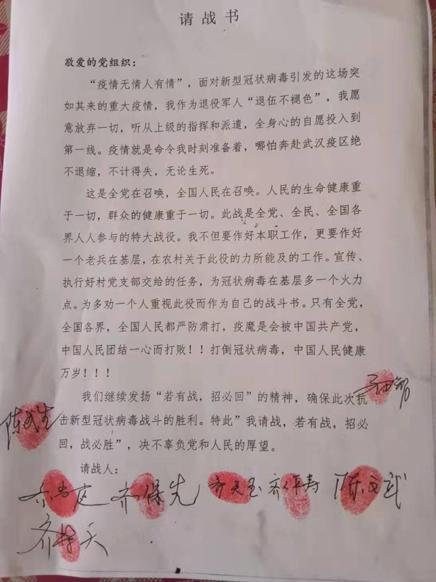 请战书
敬爱的党组织：
“疫情无情人有情”，面对新型冠状病毒引发的这场突
如其来的重大疫情，我作为退役军人“退伍不褪色”，我愿
意放弃一切，听从上级的指挥和派遣，全身心的自愿投入到
第一线。疫情就是命令我时刻准备着，哪怕奔赴武汉疫区绝
不退缩，不计得失，无论生死。
这是全党在召唤，全国人民在召唤。人民的生命健康重
于一切，群众的健康重于一切。此战是全党、全民、全国各
界人人参与的特大战役。我不但要作好本职工作，更要作好
一个老兵在基层，在农村关于此役的力所能及的工作。宣传、
执行好村党支部交给的任务，为冠状病毒在基层多一个火力
点。为多劝一个人重视此役而作为自己的战斗书。只有全党，
全国各界，全国人民都严防肃打，疫魔是会被中国共产党，
中国人民团结一心而打败！！打倒冠状病毒，中国人民健康
万岁！！！
我们继续发扬“若有战，招必回”的精神，确保此次抗
击新型冠状病毒战斗的胜利。特此”我请战，若有战，招必
回，战必胜”，决不辜负党和人民的厚望。
请战人：
齐保先
陈文武